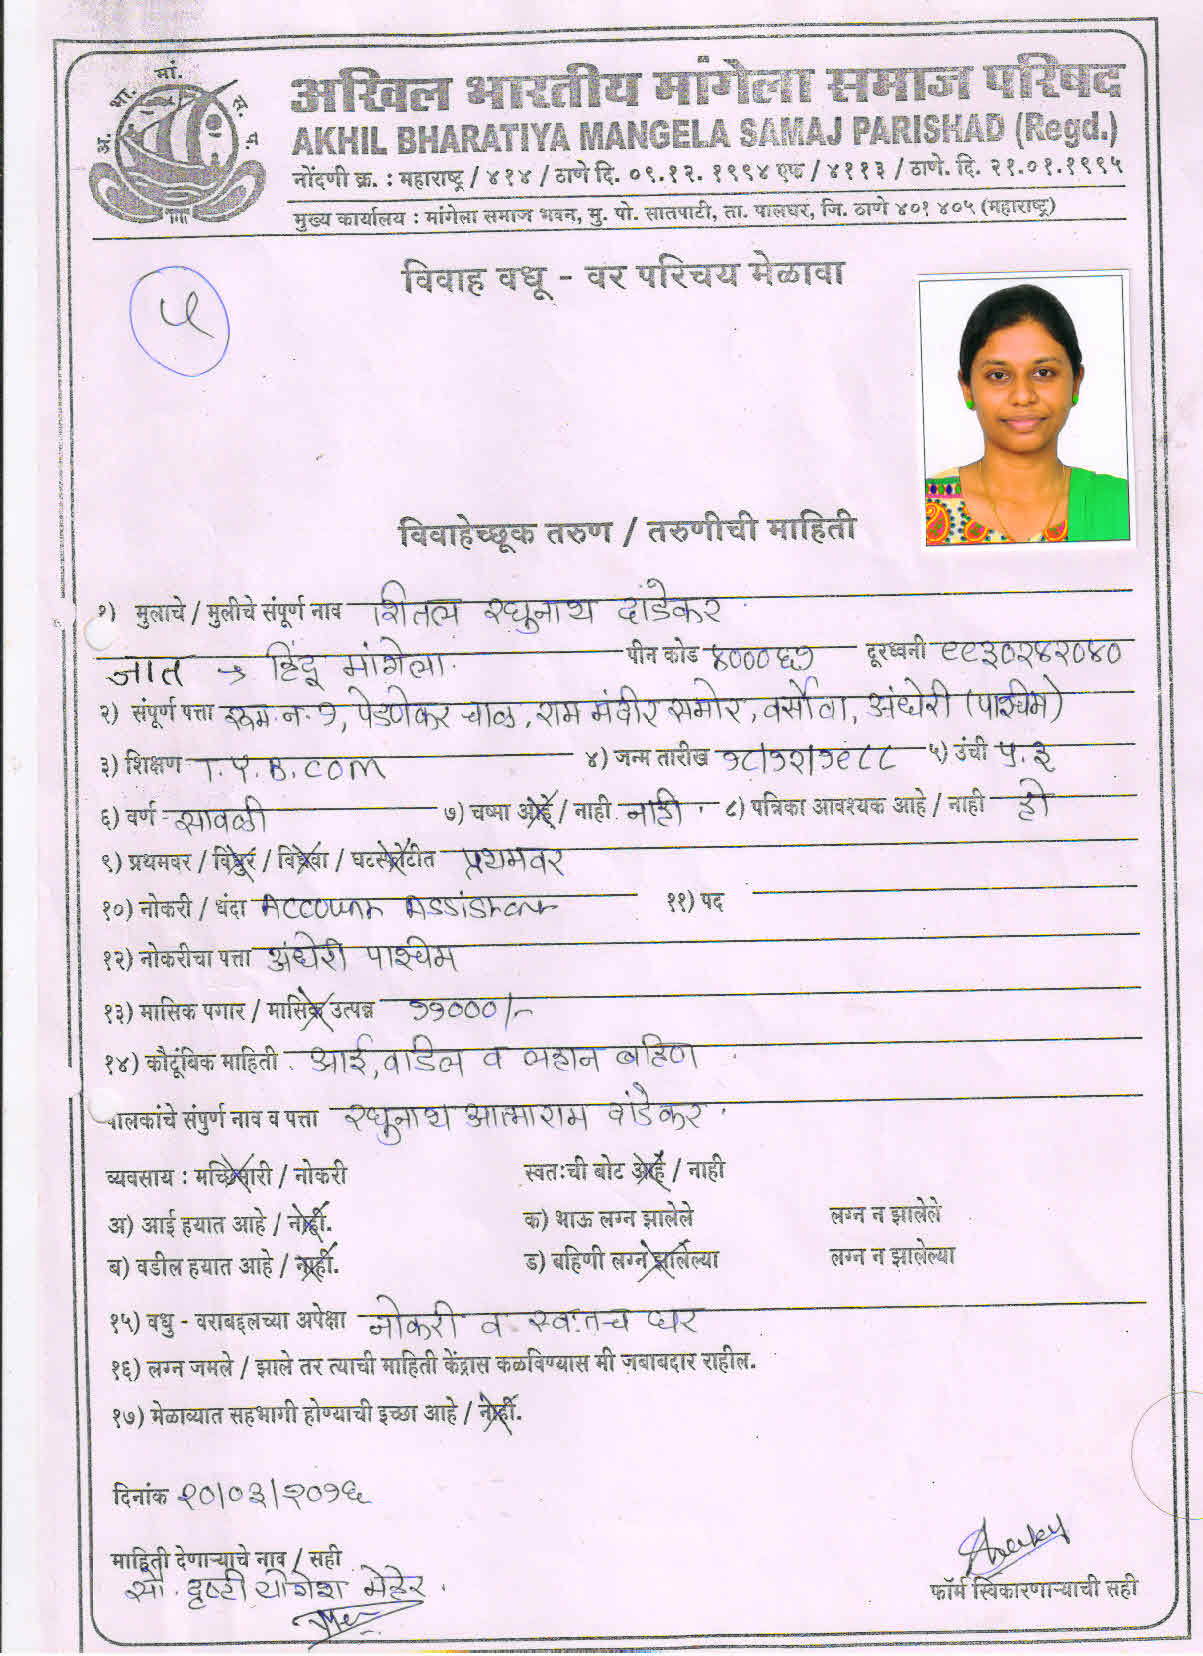 अ. भा. मां. स. प.
अखिल भारतीय मांगेला समाज परिषद
AKHIL BHARATIYA MANGELA SAMAJ PARISHAD (Regd.)
नोंदणी क्र. : महाराष्ट्र / ४१४ / ठाणे दि. ०९.१२. १९९४ एफ / ४११३ / ठाणे. दि. २१.०१.१९९५
मुख्य कार्यालय : मांगेला समाज भवन, मु. पो. सातपाटी, ता. पालघर, जि. ठाणे ४०१ ४०५ (महाराष्ट्र)
विवाह वधू - वर परिचय मेळावा
५
विवाहेच्छूक तरुण / तरुणीची माहिती
१) मुलाचे / मुलीचे संपूर्ण नाव शितल रघुनाथ दांडेकर
जात → हिंदू मांगेला. पीन कोड ४०००६१ दूरध्वनी ९९३०२४२०४०
२) संपूर्ण पत्ता रूम न. १, पेडणेकर चाळ, राम मंदीर समोर, वर्सोवा, अंधेरी (पाश्चिमे)
३) शिक्षण T.Y.B.COM ४) जन्म तारीख १८/१२/१९८८ ५) उंची ५.३
६) वर्ण सावळी ७) चष्मा आहे / नाही नाही. ८) पत्रिका आवश्यक आहे / नाही हो
९) प्रथमवर / विधुर / विधवा / घटस्फोटीत प्रथमवर
१०) नोकरी / धंदा Account Assistant ११) पद
१२) नोकरीचा पत्ता अंधेरी पाश्चिम
१३) मासिक पगार / मासिक उत्पन्न ११०००/-
१४) कौटूंबिक माहिती. आई, वडिल व लहान बहिण.
पालकांचे संपुर्ण नाव व पत्ता रघुनाथ आत्माराम दांडेकर.
व्यवसाय : मच्छिमारी / नोकरी स्वत:ची बोट आहे / नाही
अ) आई हयात आहे / नाही. क) भाऊ लग्न झालेले लग्न न झालेले
ब) वडील हयात आहे / नाही. ड) बहिणी लग्न झालेल्या लग्न न झालेल्या
१५) वधु - वराबद्दलच्या अपेक्षा नोकरी व स्व:तच घर
१६) लग्न जमले / झाले तर त्याची माहिती केंद्रास कळविण्यास मी जबाबदार राहील.
१७) मेळाव्यात सहभागी होण्याची इच्छा आहे / नाही.
दिनांक २०/०३/२०१६
माहिती देणाऱ्याचे नाव / सही
सौ. दृष्टी योगेश मेहेर.
फॉर्म स्विकारणाऱ्याची सही